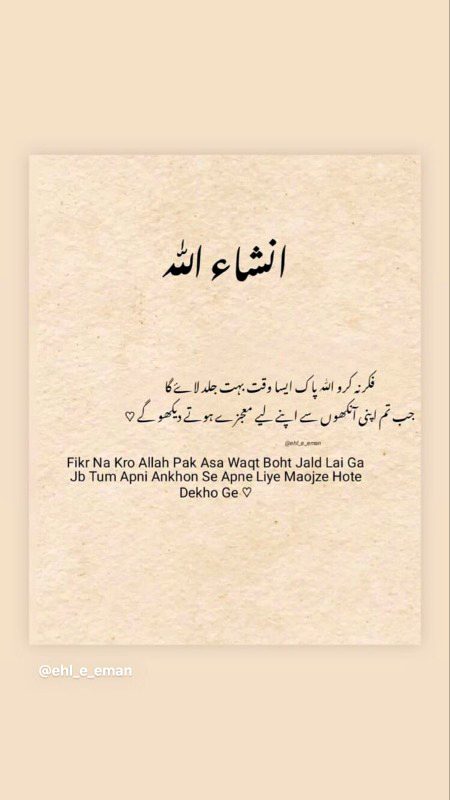 انشاء اللہ
فکر نہ کرو اللہ پاک ایسا وقت بہت جلد لائے گا
جب تم اپنی آنکھوں سے اپنے لیے معجزے ہوتے دیکھو گے ♡
@ehl_e_eman
Fikr Na Kro Allah Pak Asa Waqt Boht Jald Lai Ga
Jb Tum Apni Ankhon Se Apne Liye Maojze Hote
Dekho Ge ♡
@ehl_e_eman